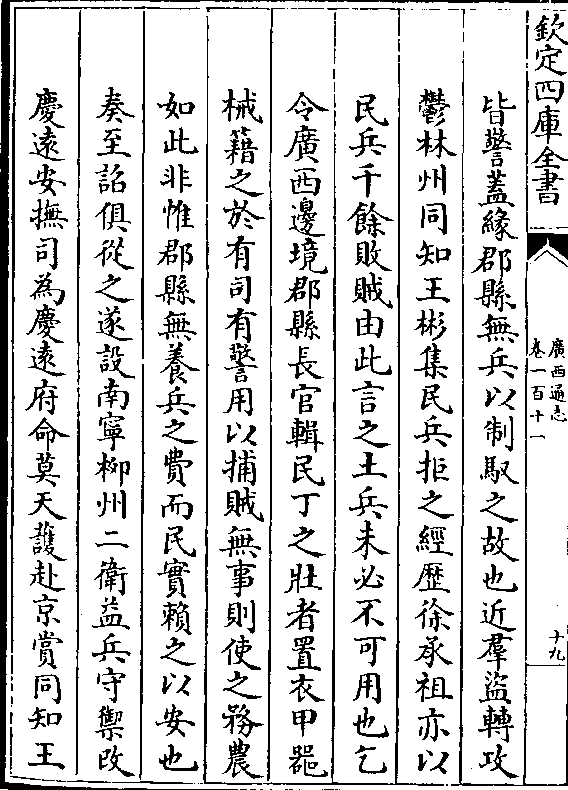 欽定四庫全書
廣西通志
卷一百十一
十九
皆警蓋緣郡縣無兵以制馭之故也近羣盜轉攻
鬱林州同知王彬集民兵拒之經歷徐承祖亦以
民兵千餘敗賊由此言之土兵未必不可用也乞
令廣西邊境郡縣長官輯民丁之壯者置衣甲噐
械籍之於有司有警用以捕賊無事則使之務農
如此非惟郡縣無養兵之費而民實賴之以安也
奏至詔俱從之遂設南寧柳州二衛益兵守禦改
慶遠安撫司為慶遠府命莫天護赴京賞同知王